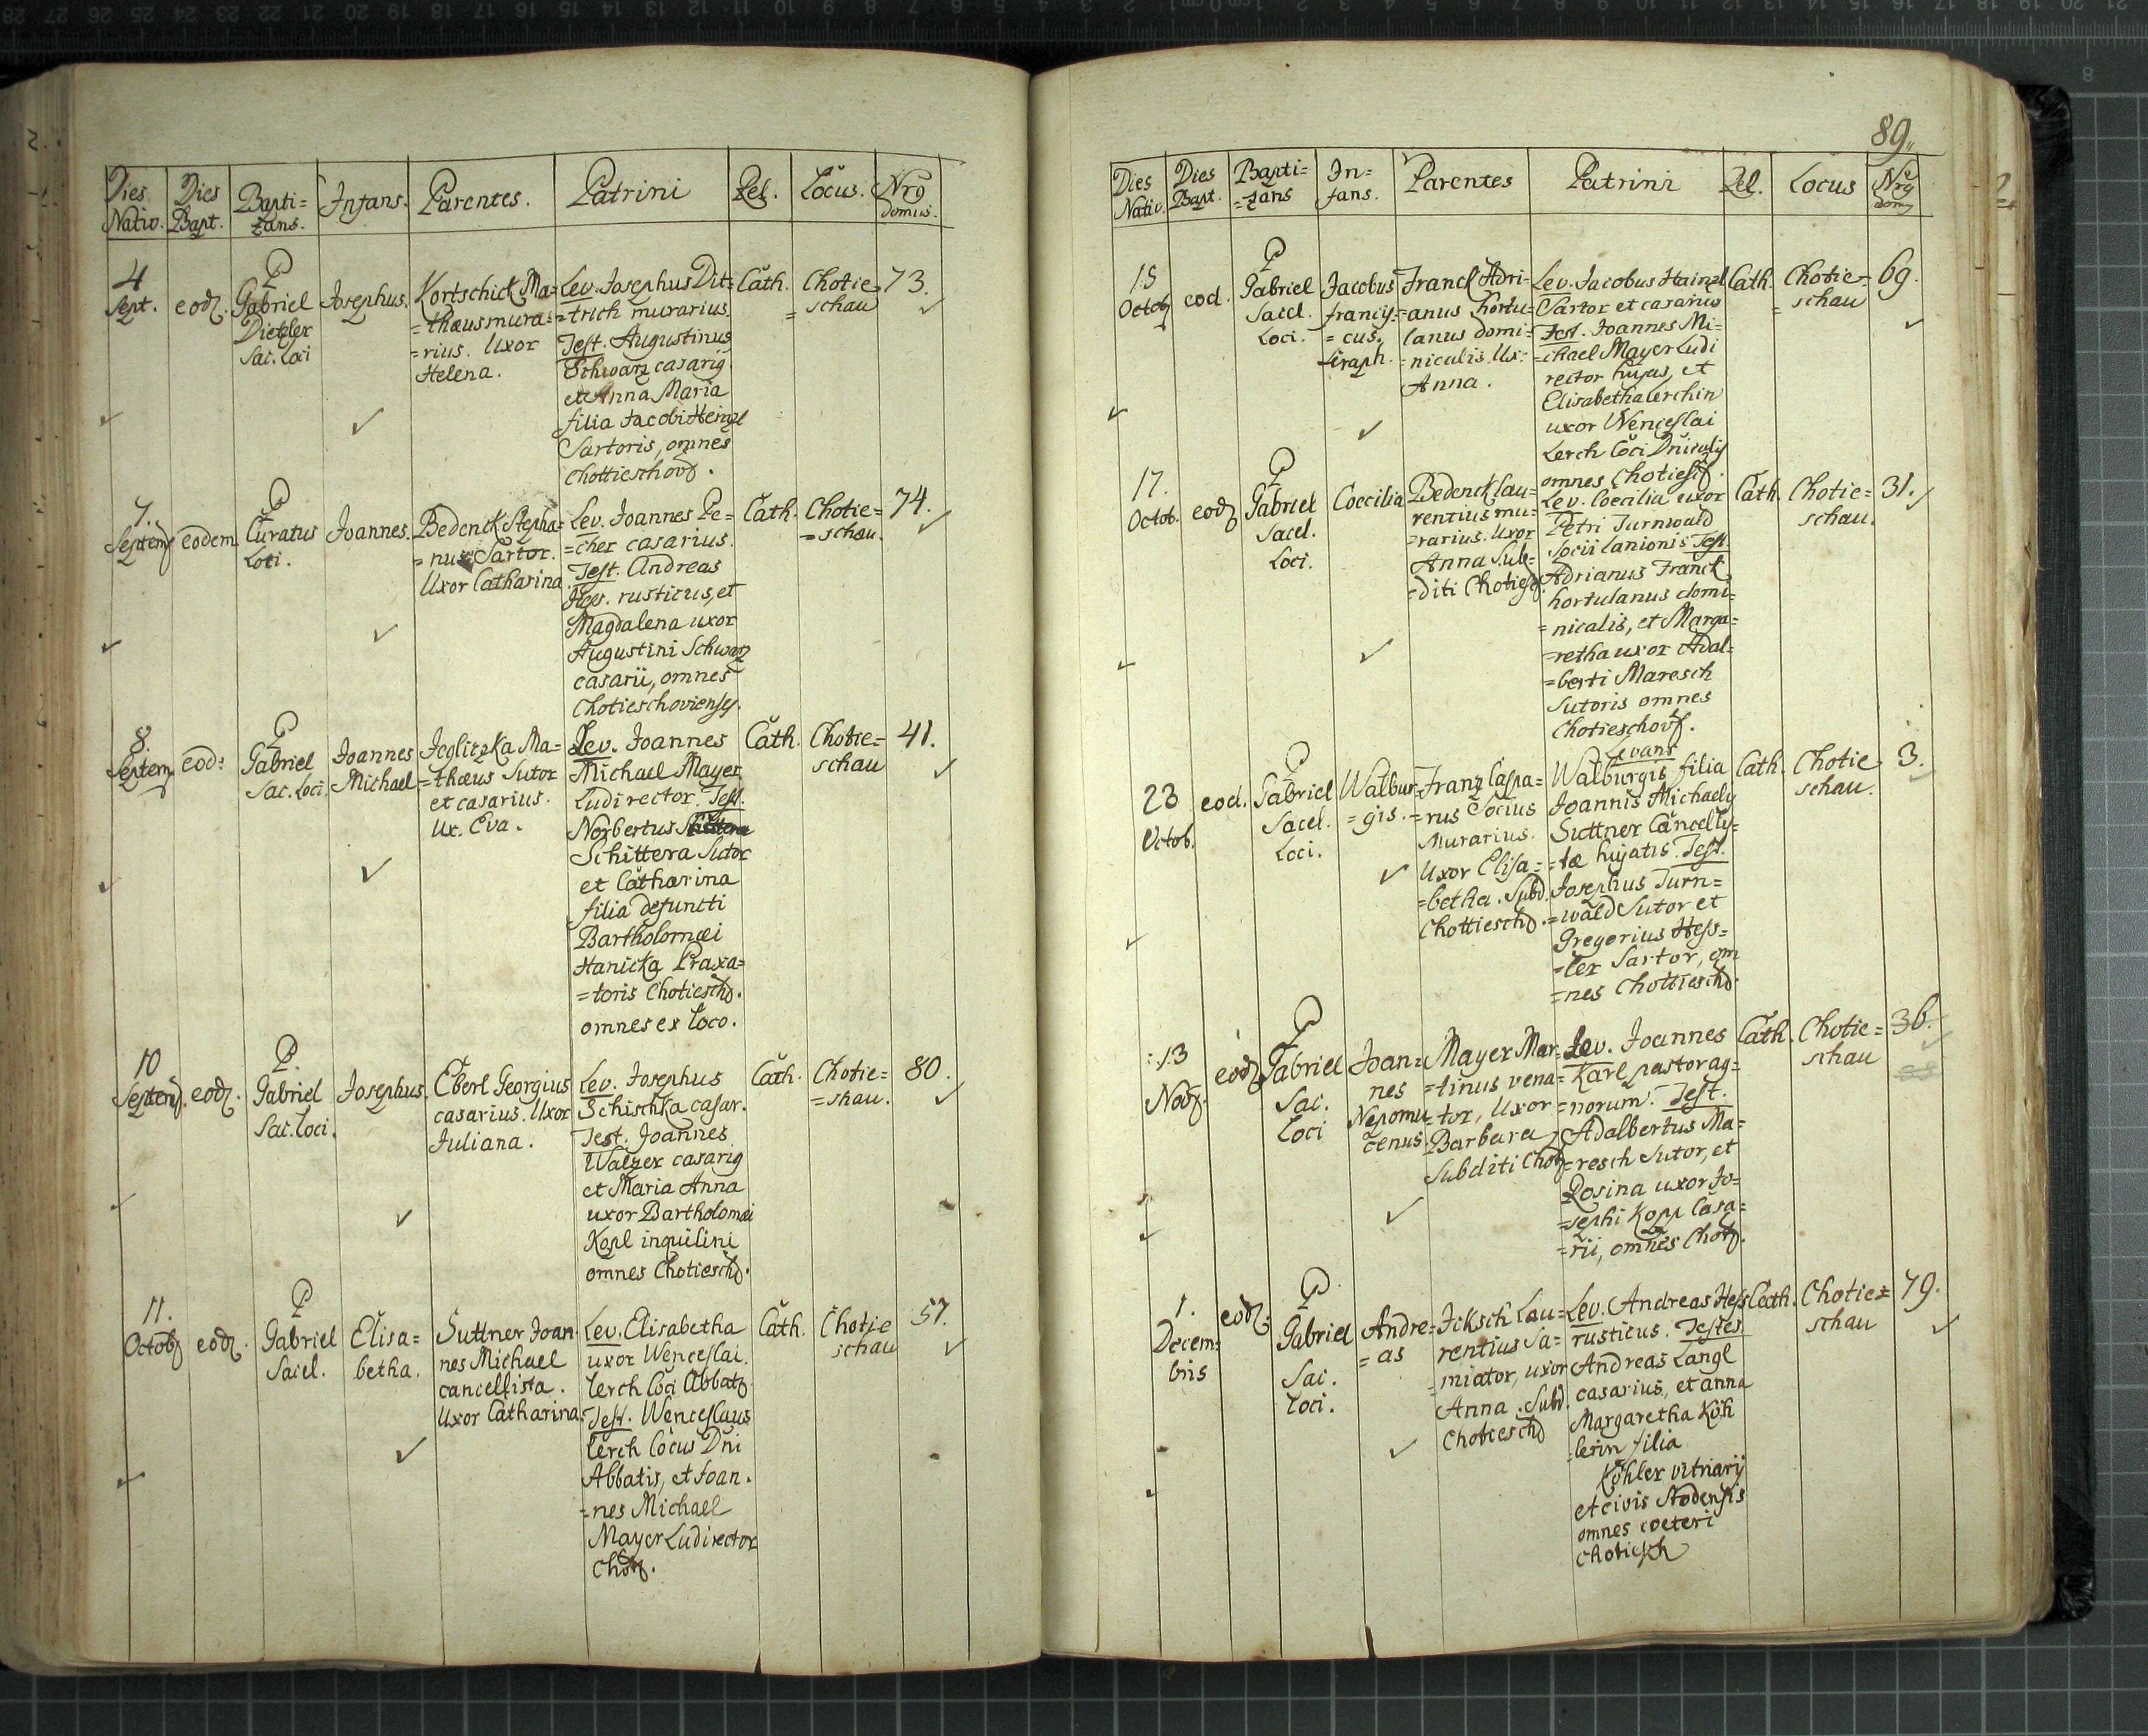 Dies Nativ. Dies Bapt. Bapti=zans. Infans. Parentes. Patrini Rel. Locus. Nro domus.
4 Sept. eod. P Gabriel Dietzler Sac. Loci
Josephus.
Kortschick Ma=
=thæus mura=
=rius. Uxor
Helena.
Lev. Josephus Dit=
=trich murarius.
Test. Augustinus
Schwarz casarig
et Anna Maria
filia Jacobi Heinzl
Sartoris, omnes
Chottieschov.
Cath.
Chotie=
=schau
73.
7. Septem eodem P Curatus Loci.
Joannes.
Bedenck Stepha=
=nus Sartor.
Uxor Catharina
Lev. Joannes Pe=
=cher casarius.
Test. Andreas
Hess. rusticus, et
Magdalena uxor
Augustini Schwarz
casarii, omnes
Chotieschovienses.
Cath.
Chotie=
=schau.
74.
8. Septem eod: P Gabriel Sac. Loci.
Joannes
Michael
Jeglizka Ma=
=thæus Sutor
et casarius.
Ux. Eva.
Lev. Joannes
Michael Mayer
Ludi rector. Test.
Norbertus
Schittera Sutor
et Catharina
filia defuncti
Bartholomæi
Hanicka Praxa=
=toris Chotiesch.
omnes ex Loco.
Cath.
Chotie=
schau
41.
10 Septem. eod. P. Gabriel Sac. Loci.
Josephus.
Eberl Georgius
casarius. Uxor
Juliana.
Lev. Josephus
Schischka casar.
Test. Joannes
Walzer casarig
et Maria Anna
uxor Bartholomæi
Kopl inquilini
omnes Chotiesch.
Cath.
Chotie=
=shau.
80.
11. Octob eod. P Gabriel Sacel.
Elisa=
betha.
Suttner Joan.
nes Michael
cancellista.
Uxor Catharina.
Lev. Elisabetha
uxor Wenceslai
Lerch Coci Abbat.
Test. Wenceslaus
Lerch Cocus Dni
Abbatis, et Joan.
=nes Michael
Mayer Ludirector
Chot.
Cath.
Chotie
schau
57.
89.
Dies Nativ. Dies Bapt. Bapti=zans In=fans. Parentes Patrini Rel. Locus Nro dom
15 Octob eod. P Gabriel Sacel. Loci.
Jacobus
francis=
=cus.
Seraph.
Franck Adri=
=anus hortu=
lanus domi=
=nicalis. Ux:
Anna.
Lev. Jacobus Hainzl
Sartor et casarius
Test. Joannes Mi=
=chael Mayer Ludi
rector hujas, et
Elisabetha Lerchin
uxor Wenceslai
Lerch Coci Dnicalis
omnes Chotiesch.
Cath.
Chotie=
=schau
69.
17. Octob. eod P Gabriel Sacel. Loci.
Coecilia
Bedenck Lau=
rentius mu=
=rarius. Uxor
Anna Sub=
=diti Chotiesch.
Lev. Coecilia uxor
Petri Turnwald
Socii Lanionis Test.
Adrianus Franck
hortulanus domi=
=nicalis, et Marga=
=retha uxor Adal=
=berti Maresch
Sutoris omnes
Chotieschov.
Cath.
Chotie=
schau.
31.
23 Octob. eod. P Gabriel Sacel. Loci.
Walbur=
=gis.
Franz Caspa=
=rus Socius
Murarius.
Uxor Elisa=
=betha. Subd.
Chottiesch.
Levans
Walburgis filia
Joannis Michaelis
Suttner Cancellis=
=tæ hujatis. Test.
Josephus Turn=
=wald Sutor et
Gregorius Hess=
=ler Sartor, om
=nes Chottiesch.
Cath.
Chotie
schau.
3.
13 Nov. eod P Gabriel Sac. Loci
Joan=
nes
Nepomu
cenus
Mayer Mar=
=tinus vena=
=tor, Uxor
Barbara
Subditi Chot
Lev. Joannes
Karl pastor ag=
=norum. Test.
Adalbertus Ma=
=resch Sutor, et
Rosina uxor Jo=
=sephi Kopp Casa=
=rii, omnes Chot.
Cath.
Chotie=
schau
36.
1. Decem=bris eod. P Gabriel Sac. Loci.
Andre=
=as
Icksch Lau=
rentius Sa=
=miator, uxor
Anna. Subd.
Chotiesch
Lev. Andreas Hess
rusticus. Testes
Andreas Langl
casarius, et anna
Margaretha Köh
lerin filia
Köhler vitriarij
et civis Stodensis
omnes coeteri
Chotiesch
Cath.
Chotie=
schau
79.